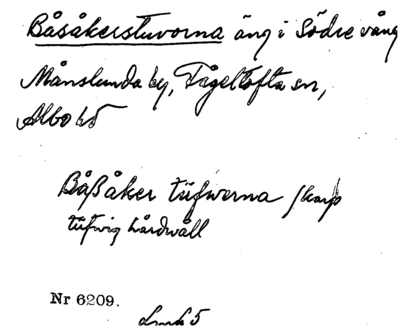 Båsåkerstuvorna äng i Södre vång
Månslunda by, Fågeltofta sn,
Albo hd
Båßåker tüfwerna skarp
tüfwig hårdwall
Nr 6209.